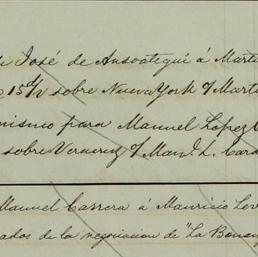 José de Ansoategui á Marti
15 d/v sobre Nueva York o/ Marti
mismo para Manuel Lopez
sobre Veracruz o/ Man. L. Card
Manuel Carrera á Mauricio Lev
ados de la negociacion de "La Bonan